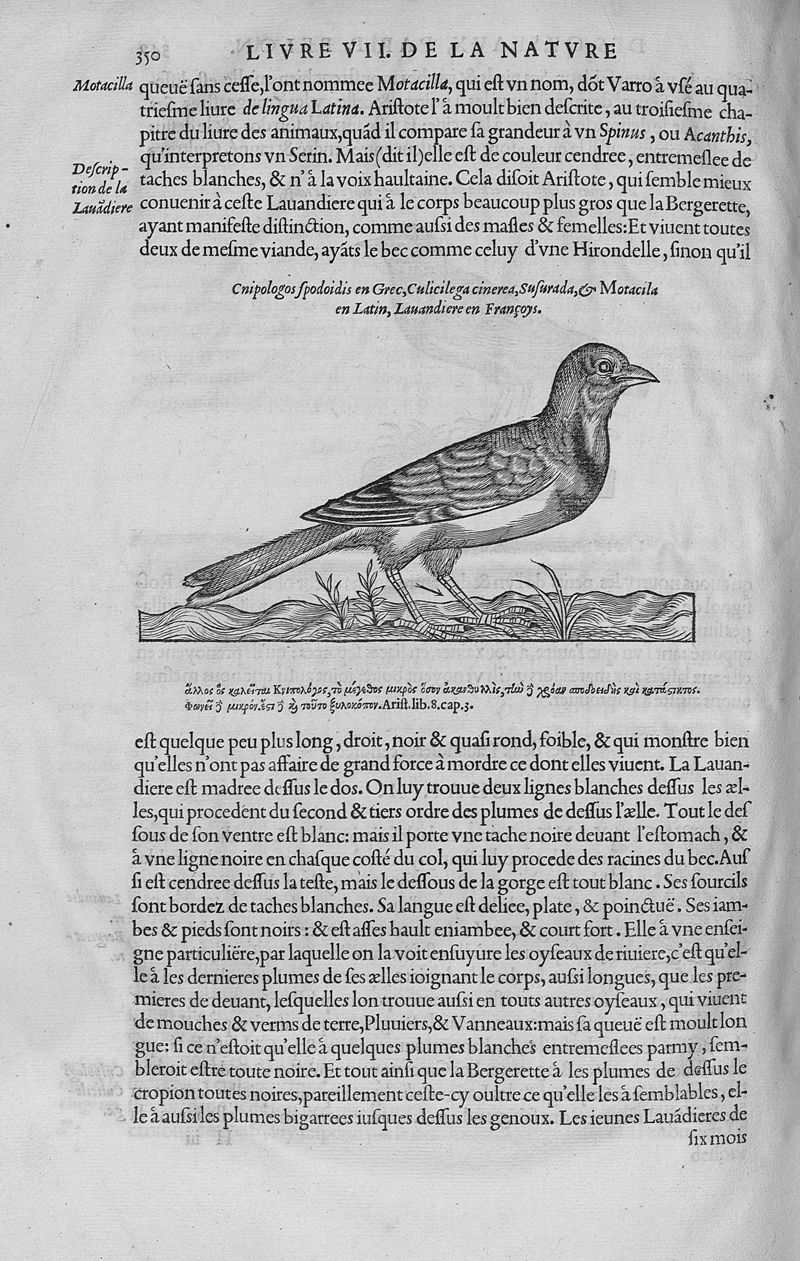 350 LIVRE VII. DE LA NATVRE
Motacilla
queuë ſans ceſſe, l'ont nommee Motacilla, qui eſt vn nom, dõt Varro à vſé au qua-
trieſme liure de lingua Latina. Ariſtote l'à moult bien deſcrite, au troiſieſme cha-
pitre du liure des animaux, quãd il compare ſa grandeur à vn Spinus, ou Acanthis,
qu'interpretons vn Serin. Mais (dit il) elle eſt de couleur cendree, entremeſlee de
Deſcrip-
tion de la
Lauãdiere
taches blanches, & n'à la voix haultaine. Cela diſoit Ariſtote, qui ſemble mieux
conuenir à ceſte Lauandiere qui à le corps beaucoup plus gros que la Bergerette,
ayant manifeſte diſtinction, comme auſsi des maſles & femelles: Et viuent toutes
deux de meſme viande, ayãts le bec comme celuy d'vne Hirondelle, ſinon qu'il
Cnipologos ſpodoidis en Grec, Culicilega cinerea, Suſurada, & Motacila
en Latin, Lauandiere en Françoys.
ἄλλος ὃς καλεῖται Κνιπολόγος, τὸ μέγεθος μικρὸς ὅσον ἀκανθυλλὶς, τὴν ἢ χρόαν σποδοειδὴς καὶ κατάστικτος.
Φωνεῖ ἢ μικρόν. ἔστι ἢ καὶ τοῦτο ξυλοκόπον. Ariſt. lib. 8. cap. 3.
eſt quelque peu plus long, droit, noir & quaſi rond, foible, & qui monſtre bien
qu'elles n'ont pas affaire de grand force à mordre ce dont elles viuent. La Lauan-
diere eſt madree deſſus le dos. On luy trouue deux lignes blanches deſſus les æl-
les, qui procedent du ſecond & tiers ordre des plumes de deſſus l'ælle. Tout le deſ
ſous de ſon ventre eſt blanc: mais il porte vne tache noire deuant l'eſtomach, &
à vne ligne noire en chaſque coſté du col, qui luy procede des racines du bec. Auſ
ſi eſt cendree deſſus la teſte, mais le deſſous de la gorge eſt tout blanc. Ses ſourcils
ſont bordez de taches blanches. Sa langue eſt deliee, plate, & poinctuë. Ses iam-
bes & pieds ſont noirs: & eſt aſſes hault eniambee, & court fort. Elle à vne enſei-
gne particuliëre, par laquelle on la voit enſuyure les oyſeaux de riuiere, c'eſt qu'el-
le à les dernieres plumes de ſes ælles ioignant le corps, auſsi longues, que les pre-
mieres de deuant, leſquelles lon trouue auſsi en touts autres oyſeaux, qui viuent
de mouches & verms de terre, Pluuiers, & Vanneaux: mais ſa queuë eſt moult lon
gue: ſi ce n'eſtoit qu'elle à quelques plumes blanches entremeſlees parmy, ſem-
bleroit eſtre toute noire. Et tout ainſi que la Bergerette à les plumes de deſſus le
cropion toutes noires, pareillement ceſte-cy oultre ce qu'elle les à ſemblables, el-
le à auſsi les plumes bigarrees iuſques deſſus les genoux. Les ieunes Lauãdieres de
ſix mois